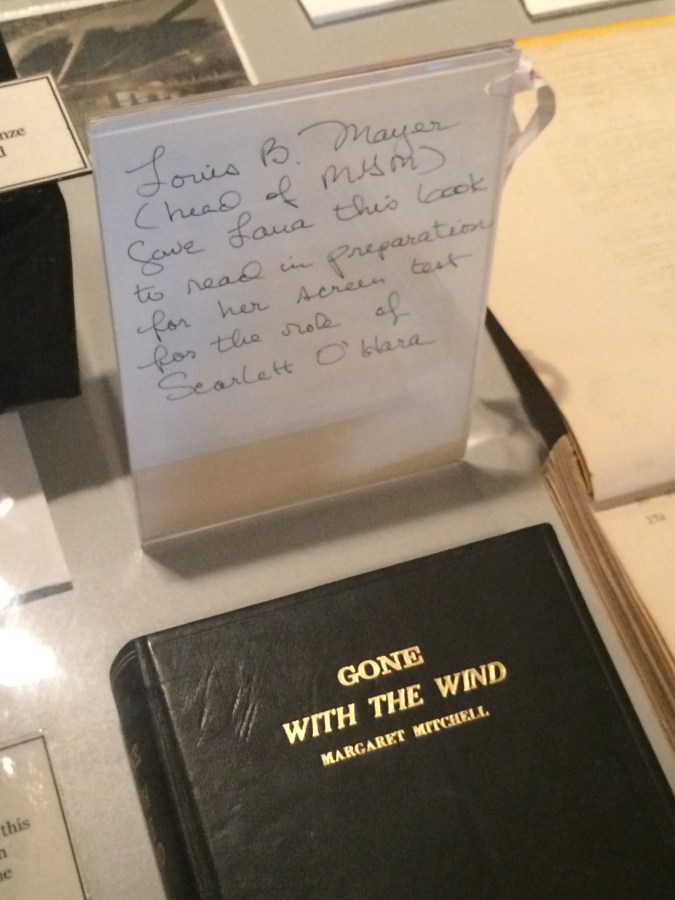 nze
d
Louis B. Mayer
(head of MGM)
Gave Lana this book
to read in preparation
for her screen test
for the role of
Scarlett O'Hara
GONE
WITH THE WIND
MARGARET MITCHELL
this
n
ne